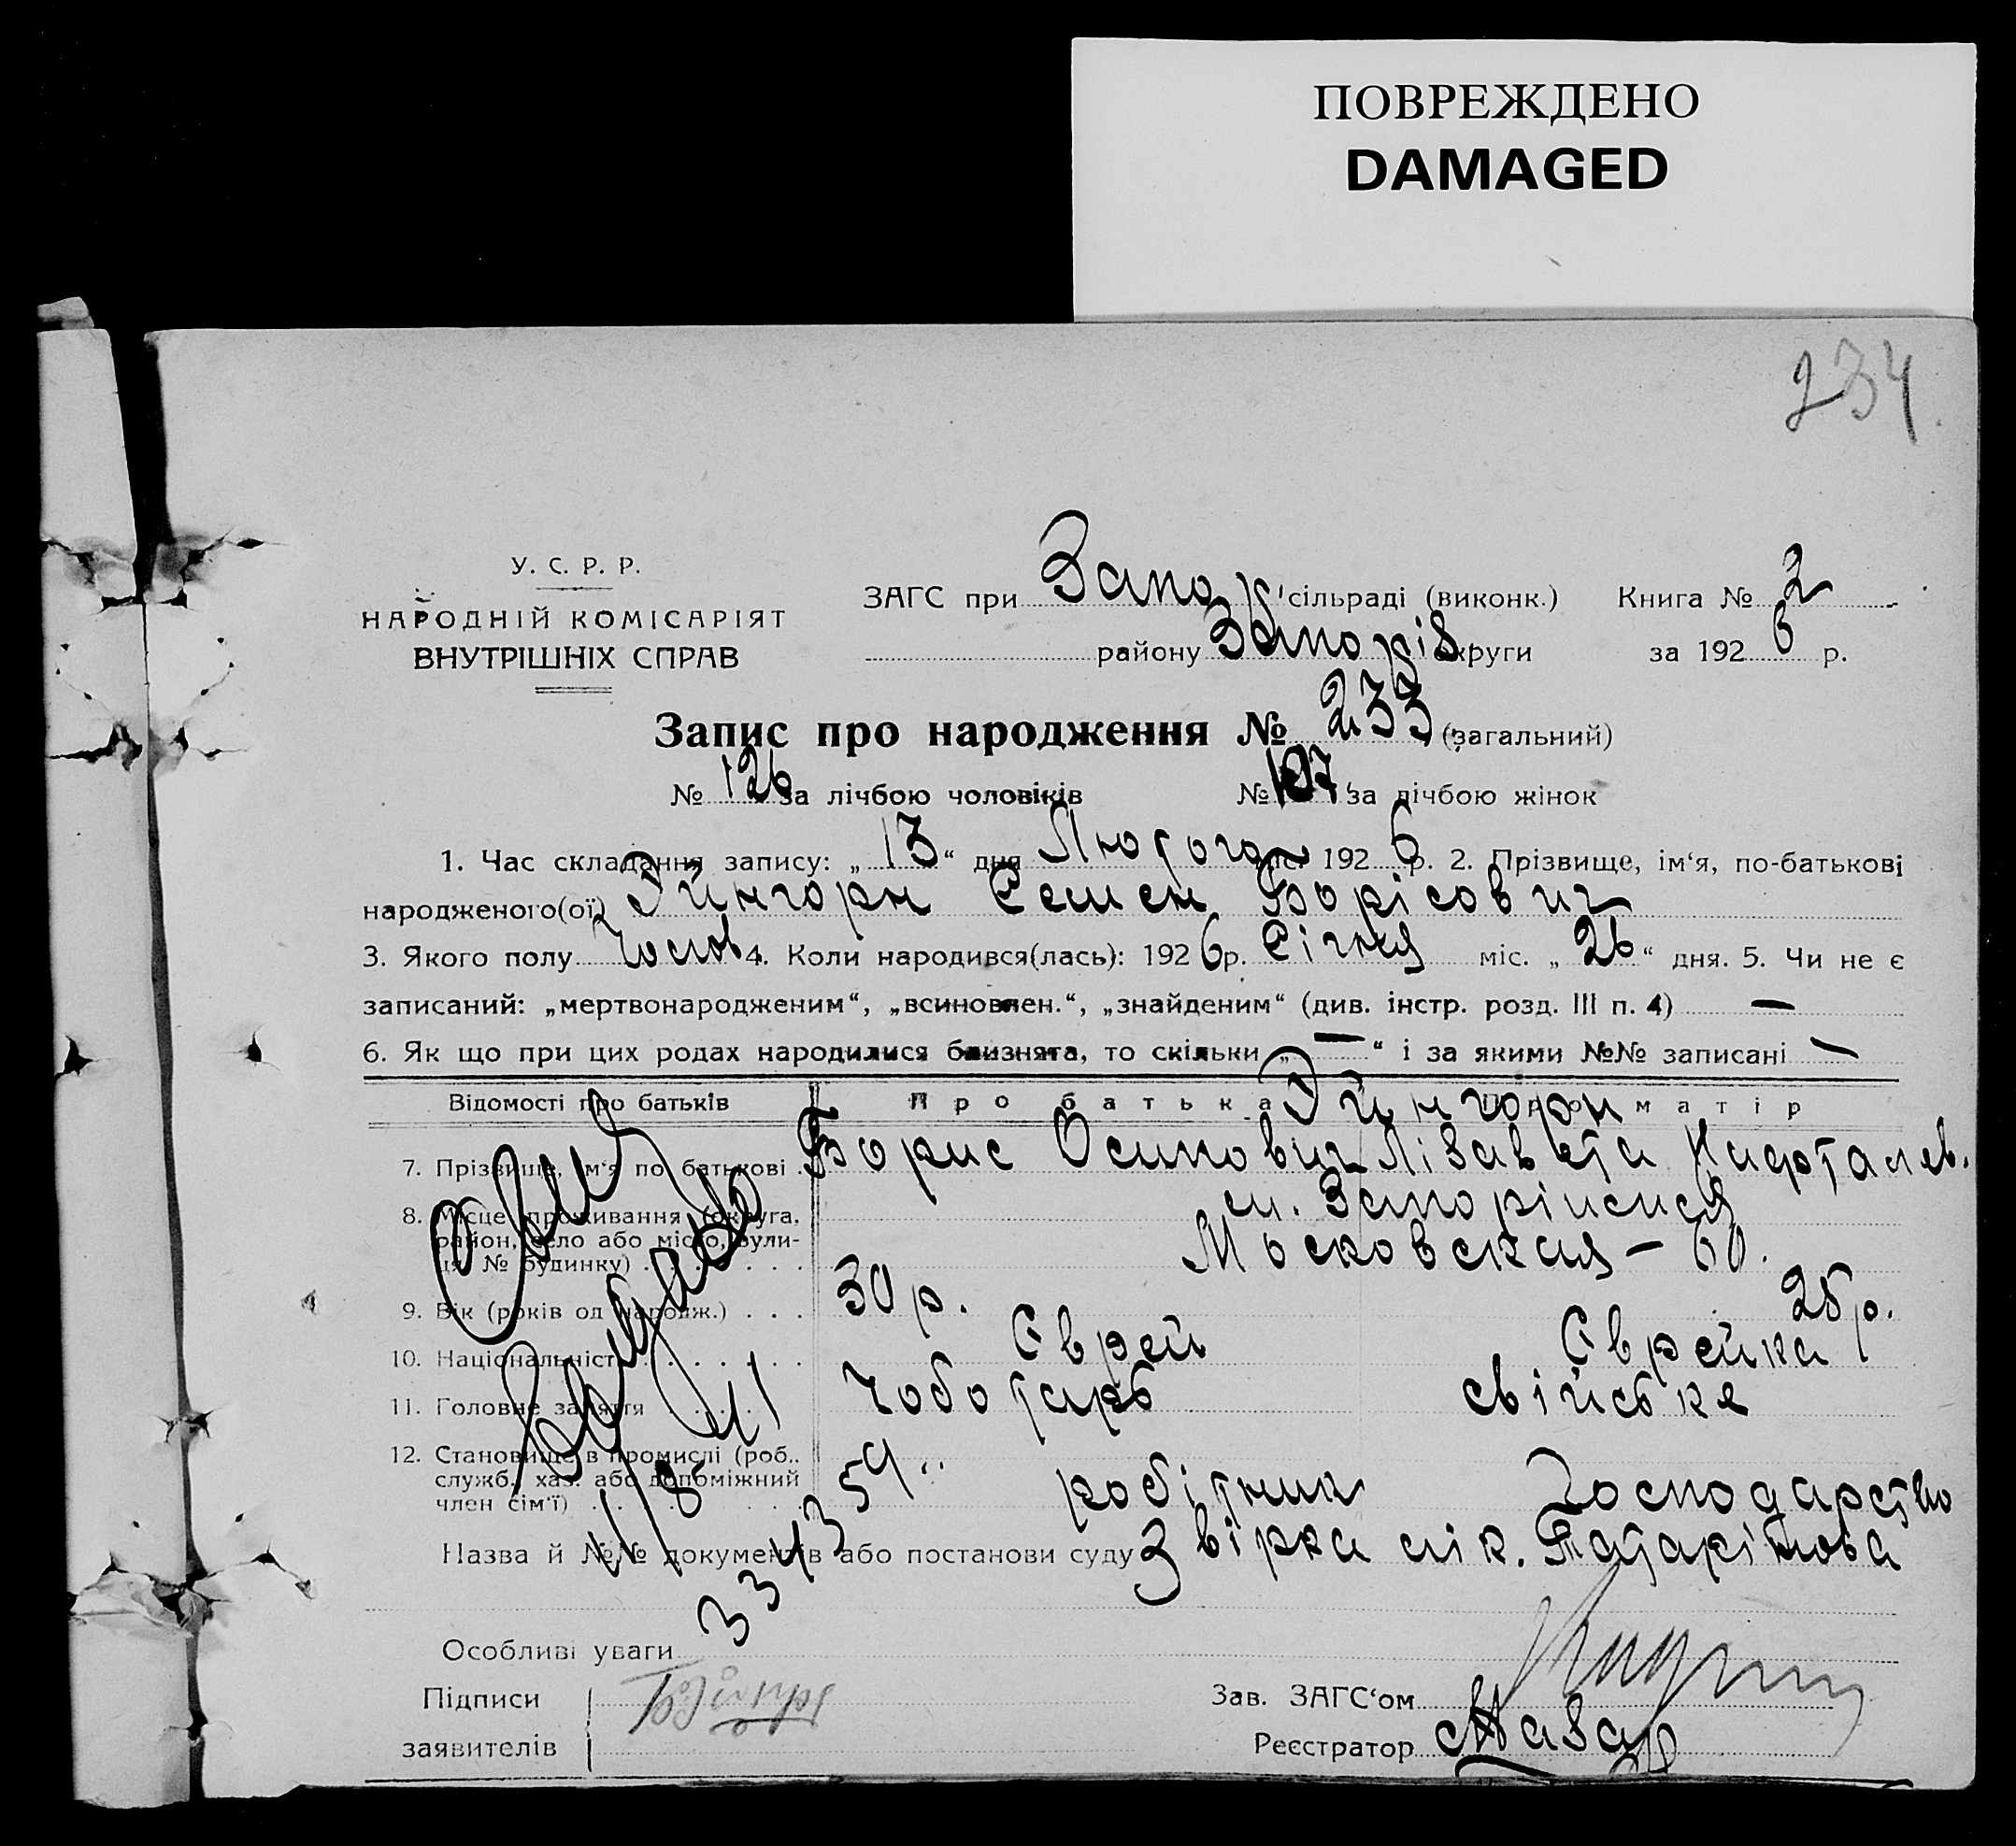 ПОВРЕЖДЕНО
DAMAGED
234
У. С. Р. Р.
НАРОДНІЙ КОМІСАРІЯТ
ВНУТРІШНІХ СПРАВ
ЗАГС при Запор. сільраді (виконк.) Книга № 2
району Запоріз. округи за 192 6 р.
Запис про народження № 233 (загальний)
№ 126 за лічбою чоловіків № 107 за лічбою жінок
1. Час складання запису: „ 13 “ дня Лютого міс. 192 6 р. 2. Прізвище, ім‘я, по-батькові
народженого(ої) Эйнгорн Семен Борісович
3. Якого полу Чолов. 4. Коли народився(лась): 192 6 р. Січня міс. „ 26 “ дня. 5. Чи не є
записаний: „мертвонародженим“, „всиновлен.“, „знайденим“ (див. інстр. розд. III п. 4) —
6. Як що при цих родах народилися близнята, то скільки „ — “ і за якими №№ записані —
Відомості про батьків Про батька Про матір
Эйнгорн
7. Прізвище, ім‘я по батькові . Борис Осипович Лізавета Нафталев.
8. Місце проживання (округа, район, село або місто, вулиця № будинку) . . . . . . м. Запоріжжя
Московская — 60.
9. Вік (років од народж.) . . . 30 р. 25 р.
10. Національність . . . . . . Єврей Єврейка
11. Головне заняття . . . . . Чоботарь свійське
12. Становище в промислі (роб., служб., хаз. або допоміжний член сім‘ї) . . . . . . робітник Господарство
Назва й №№ документів або постанови суду Звірка лік.
334359
Особливі уваги
Підписи
заявителів
Зав. ЗАГС‘ом
Реєстратор